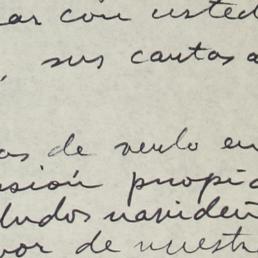 ar con usted
, sus cartas a
os de verlo en
sión propic
ludos navideñ
vor de nuestr